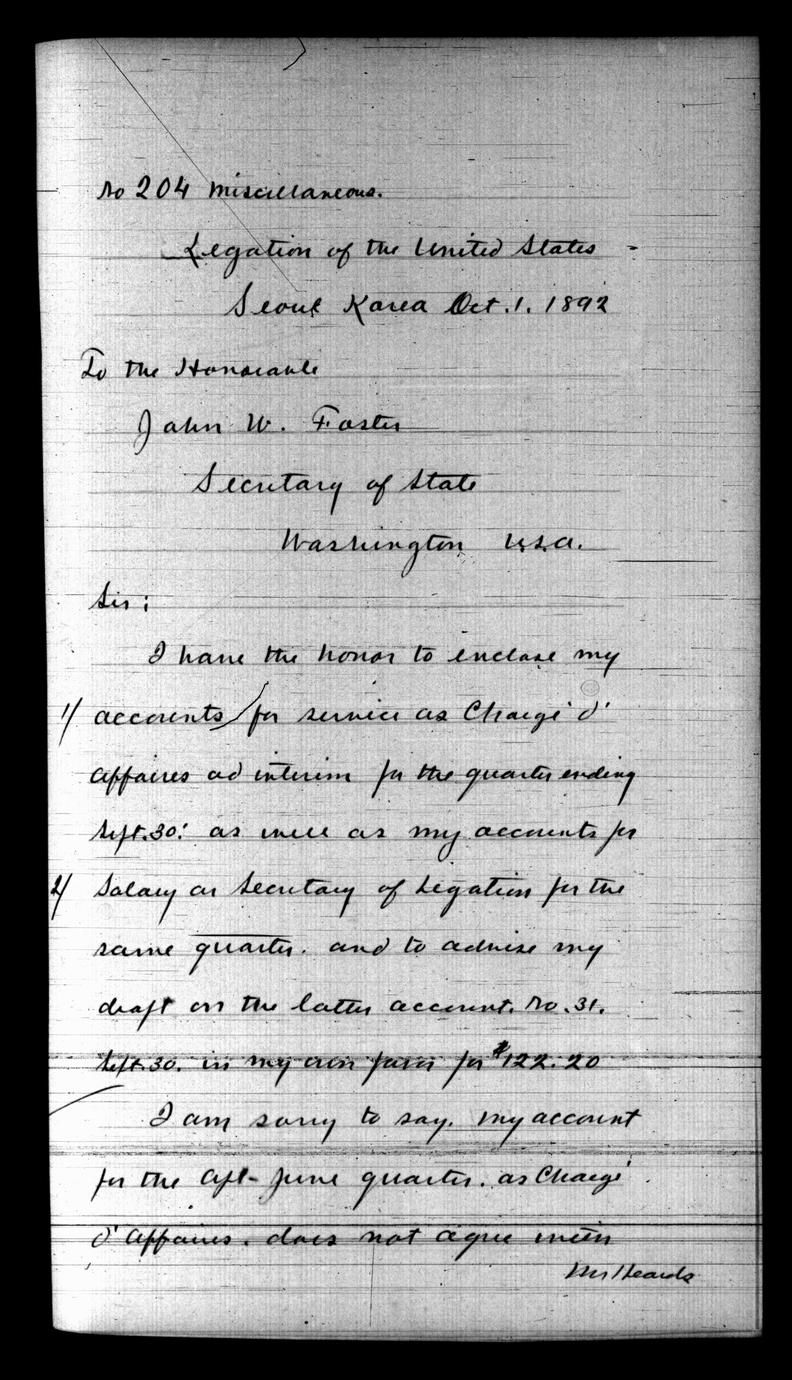 No 204 Miscellaneous.
Legation of the United States
Seoul Korea Oct. 1. 1892
To the Honorable
John W. Foster
Secretary of State
Washington U.S.A.
Sir:
I have the honor to enclose my
1/ accounts for service as Chargé d'
affaires ad interim for the quarter ending
Sept. 30: as well as my accounts for
2/ Salary as Secretary of Legation for the
same quarter. and to advise my
draft on the latter account. No. 31.
Sept. 30. in my own favor for $122.20
I am sorry to say. my account
for the Apl- June quarter. as Chargé
d'Affaires. does not agree with
Mr Heards